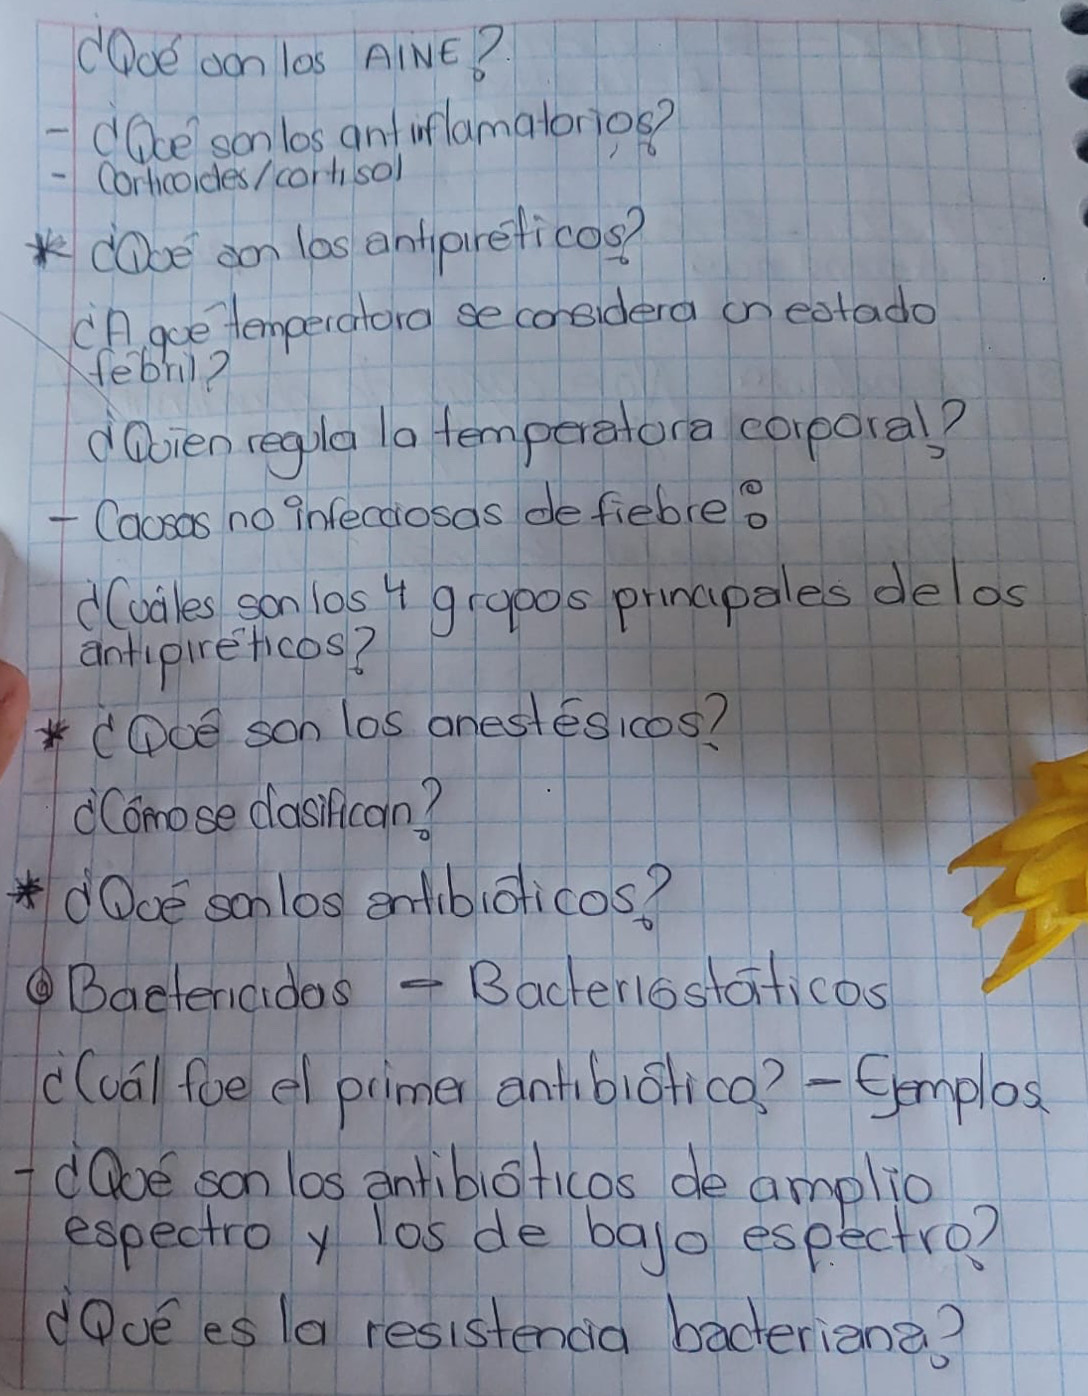 ¿Qué son los AINE?
- ¿Qué son los antiinflamatorios?
- Corticoides/cortisol
* ¿Qué son los antipiréticos?
¿A qué temperatura se considera un estado
febril?
¿Quien regula la temperatura corporal?
- Causas no infecciosas de fiebre:
¿Cuáles son los 4 grupos principales de los
antipiréticos?
* ¿Qué son los anestésicos?
¿Cómo se clasifican?
* ¿Qué son los antibióticos?
Bactericidas - Bacterióstáticos
¿Cuál fue el primer antibiótico? - Ejemplos
- ¿Qué son los antibióticos de amplio
espectro y los de bajo espectro?
¿Qué es la resistencia bacteriana?